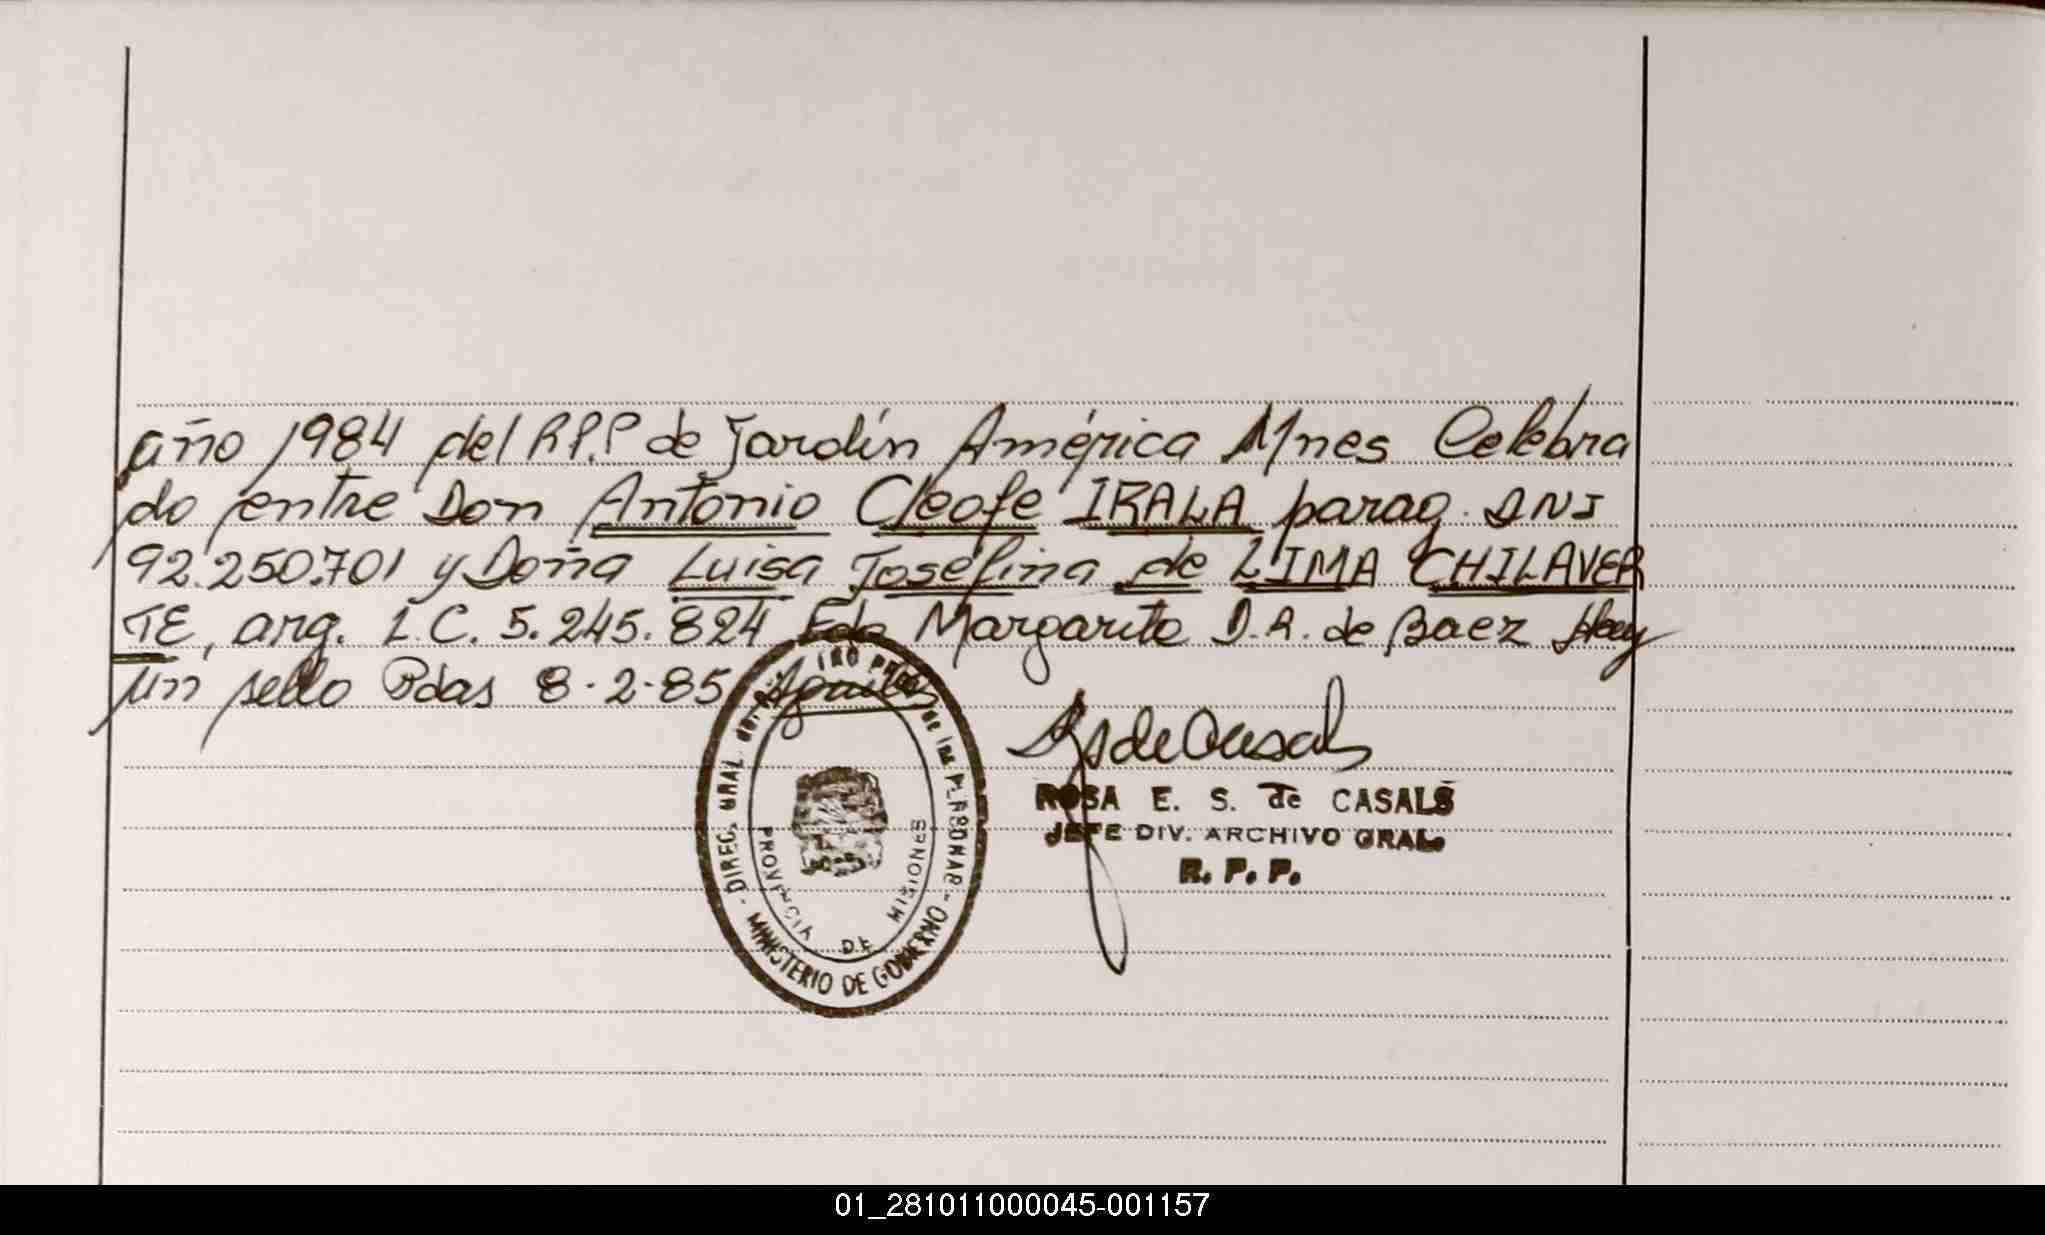 año 1984 del R.P.P de Jardín América Mnes Celebra
do entre Don Antonio Cleofe IRALA parag. DNI
92.250.701 y Doña Luisa Josefina de LIMA CHILAVER
TE, arg. L.C. 5.245.824 Fdo Margarita D.R. de Baez Hay
un sello Pdas 8-2-85
DIREC. GRAL. del REGISTRO PROV. de las PERSONAS
PROVINCIA DE MISIONES
MINISTERIO DE GOBIERNO
ROSA E. S. de CASALS
JEFE DIV. ARCHIVO GRAL.
R. P. P.
01_281011000045-001157